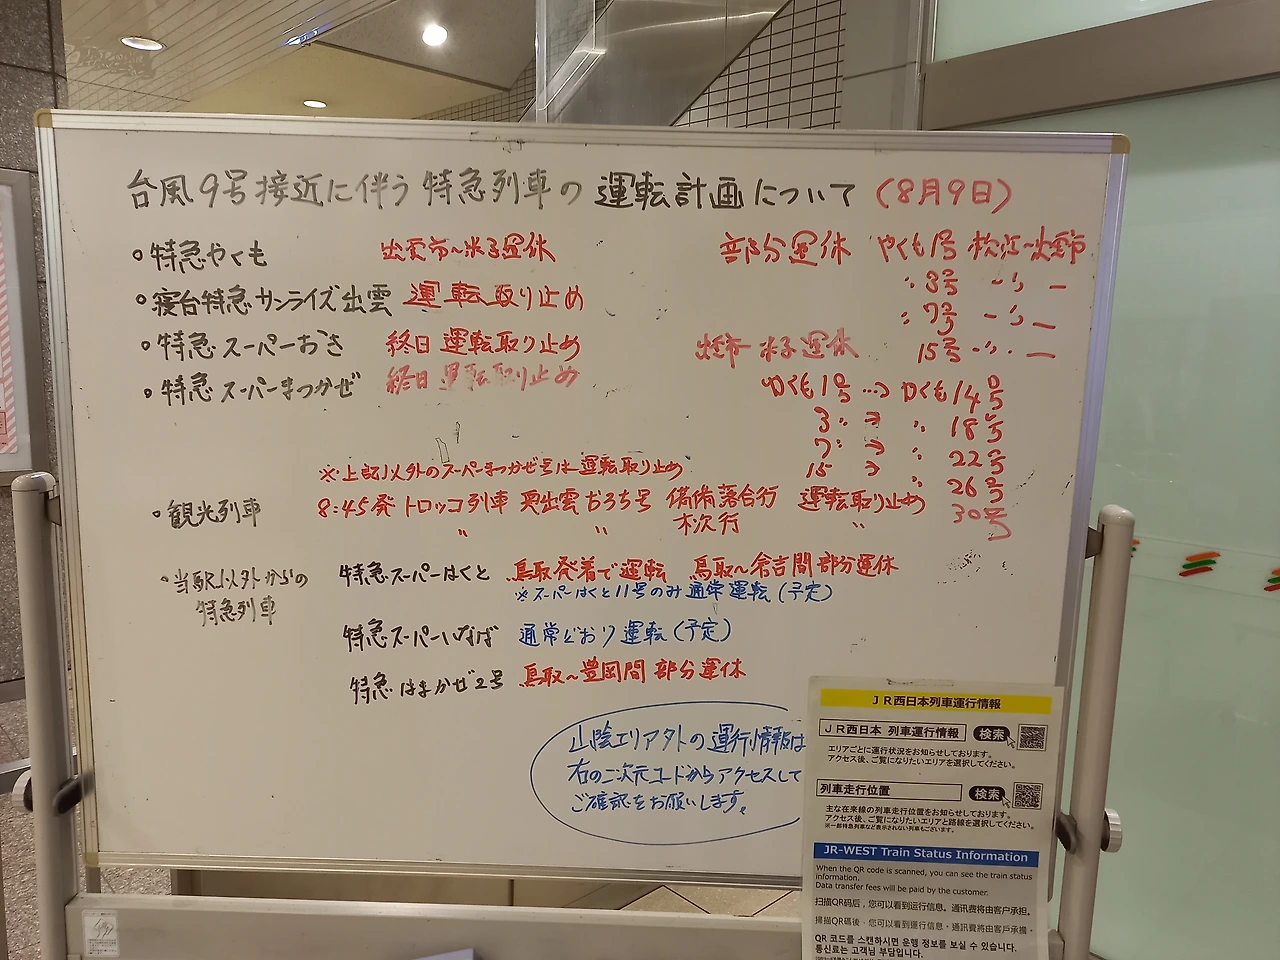 台風9号接近に伴う特急列車の運転計画について(8月9日)
・特急やくも 出雲市～米子運休 部分運休 やくも1号 松江～出雲市
〃 3号 〃 ー
〃 7号 〃 ー
・寝台特急サンライズ出雲 運転取り止め
・特急スーパーおき 終日運転取り止め 出雲市 米子運休 15号 〃 ー
・特急スーパーまつかぜ 終日運転取り止め やくも1号 → やくも14号
3〃 → 〃 18号
7〃 → 〃 22号
15 → 〃 26号
30号
※上記以外のスーパーまつかぜ号は運転取り止め
・観光列車 8:45発 トロッコ列車 奥出雲おろち号 備後落合行 運転取り止め
〃 〃 木次行 〃
・当駅以外からの
特急列車
特急スーパーはくと 鳥取発着で運転 鳥取～倉吉間部分運休
※スーパーはくと11号のみ通常運転(予定)
特急スーパーいなば 通常どおり運転(予定)
特急はまかぜ2号 鳥取～豊岡間部分運休
山陰エリア外の運行情報は
右の二次元コードからアクセスして
ご確認をお願いします。
JR西日本列車運行情報
JR西日本 列車運行情報 検索
エリアごとに運行状況をお知らせしております。
アクセス後、ご覧になりたいエリアを選択してください。
列車走行位置 検索
主な在来線の列車走行位置をお知らせしております。
アクセス後、ご覧になりたいエリアと路線を選択してください。
※一部特急列車など表示されない列車もございます。
JR-WEST Train Status Information
When the QR code is scanned, you can see the train status
information.
Data transfer fees will be paid by the customer.
扫描QR码后，您可以看到运行信息。通讯费将由客户承担。
掃描QR碼後，您可以看到運行信息。通訊費將由客戶承擔。
QR 코드를 스캔하시면 운행 정보를 보실 수 있습니다.
통신료는 고객님 부담입니다.